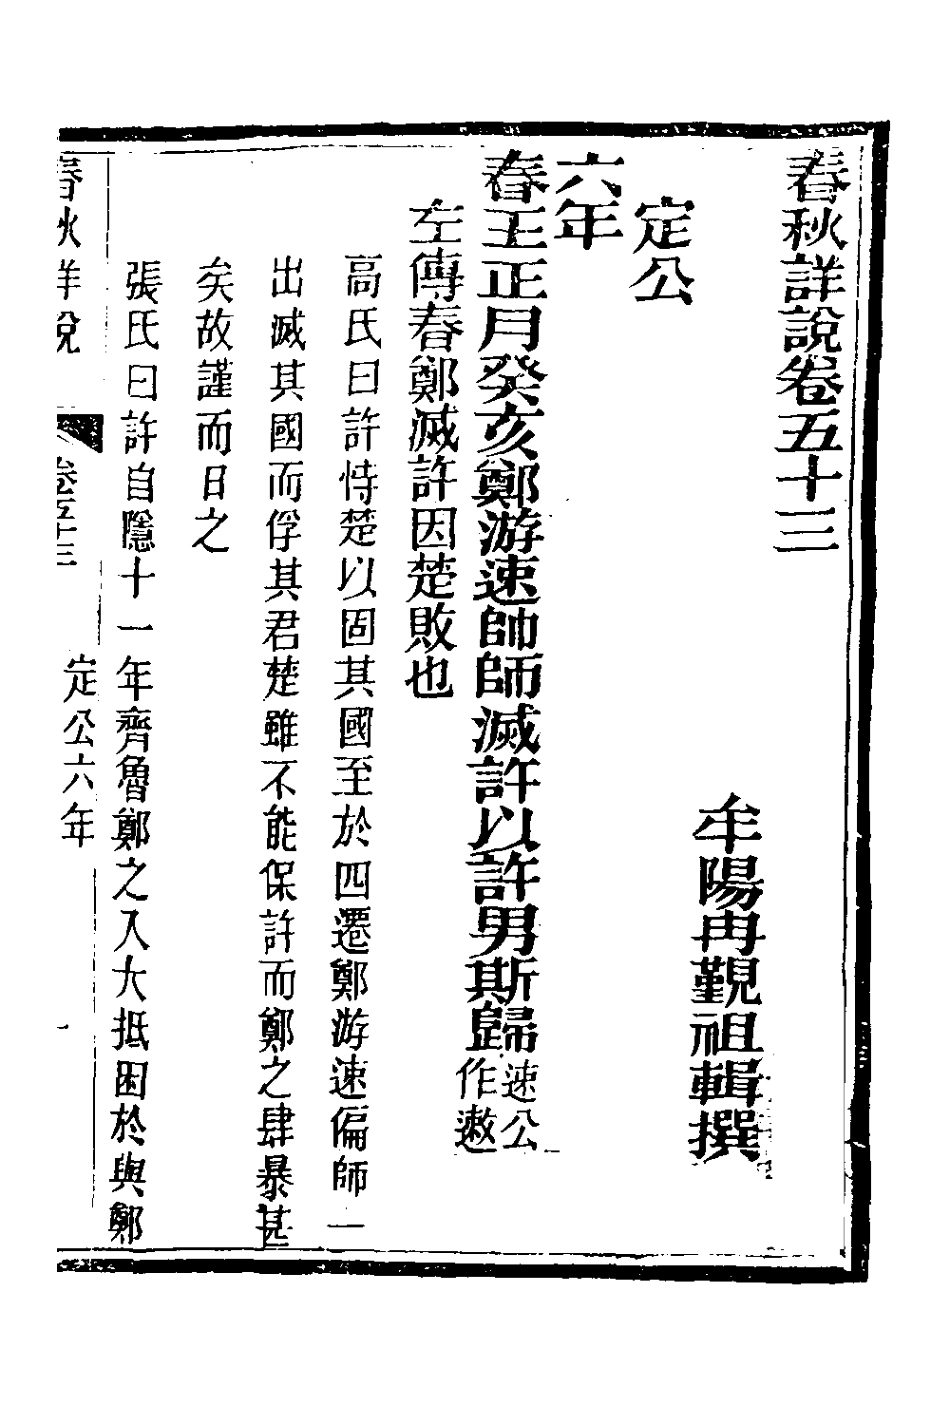 春秋詳說卷五十三
牟陽冉覲祖輯撰
定公
六年
春王正月癸亥鄭游速帥師滅許以許男斯歸速公作遬
左傳春鄭滅許因楚敗也
高氏曰許恃楚以固其國至於四遷鄭游速偏師一
出滅其國而俘其君楚雖不能保許而鄭之肆暴甚
矣故謹而日之
張氏曰許自隱十一年齊魯鄭之入大抵困於與鄭
春秋詳說 卷五十三 定公六年 一